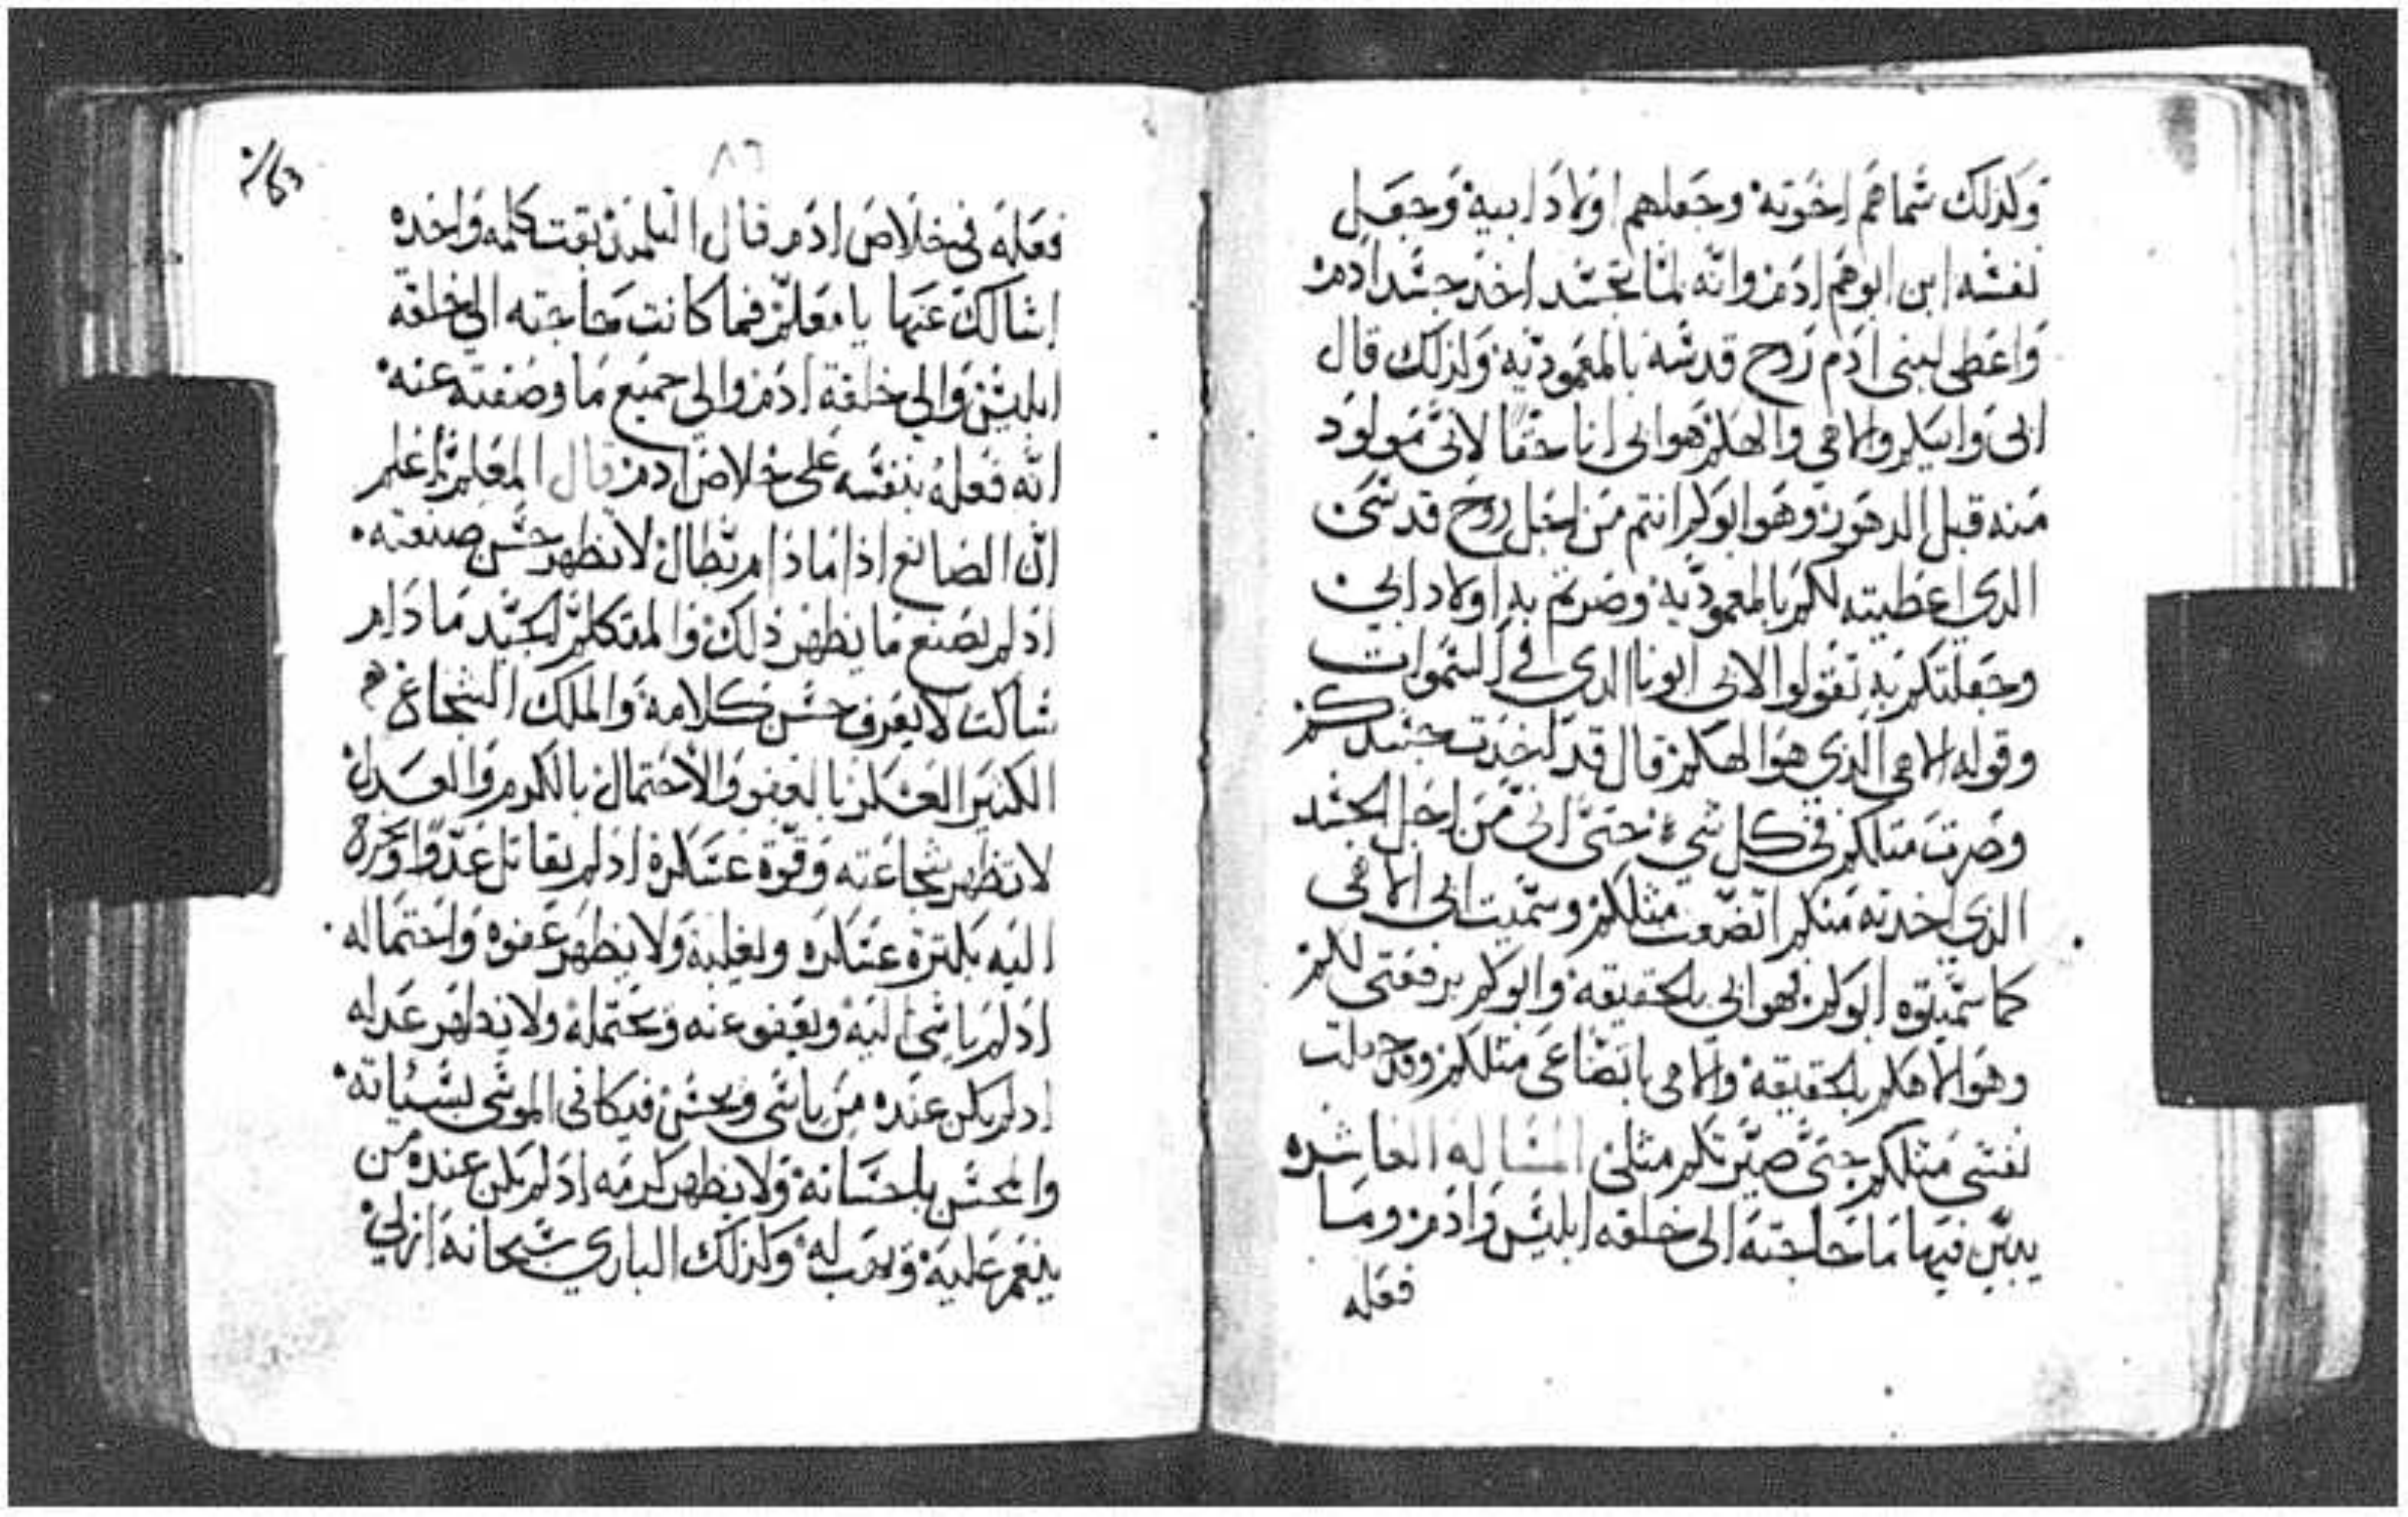 ولذلك سماهم اخوته وجعلهم اولاد ابيه وجعل
نفسه ابن ابوهم ادم وانه لما تجسد اخذ جسد ادم
واعطى لبني ادم روح قدسه بالمعموديه ولذلك قال
ابي وابيكم والاهي والهكم هو ابي انا حقا لاني مولود
منه قبل الدهور وهو ابوكم انتم من اجل روح قدسي
الدي اعطيته لكم بالمعموديه وصرتم به اولاد ابي
وجعلتكم به تقولوا لابي ابونا الدي في السموات
وقوله الاهي الذي هو الهكم قال قد اخدت جسدكم
وصرت مثلكم في كل شيء حتى اني من اجل الجسد
الذي اخدته منكم اتضعت مثلكم وسميت ابي الاهي
كما سميتوه ابوكم فهو ابي بالحقيقه وابوكم برفعتي لكم
وهو الاهكم بالحقيقه والاهي باتضاعي مثلكم وقد جعلت
نفسي مثلكم حتى صيرتكم مثلي المساله العاشره
يبين فيها ما حاجته الى خلقه ابليس وادم وما
فعله
٨٦
فعله في خلاص ادم قال التلميذ بقت كلمه واحده
اسالك عنها يا معلم فما كانت حاجته الى خلقة
ابليس والى خلقة ادم والى جميع ما وصفته عنه
انه فعله بنفسه على خلاص ادم قال المعلم اعلم
ان الصانع اذا ما دام بطال لا يظهر حسن صنعته
اذ لم يصنع ما يظهر ذلك والمتكلم الجيد ما دام
ساكت لا يعرف حسن كلامه والملك الشجاع
الكثير العسكر بالعفو والاحتمال بالكرم والعدل
لا تظهر شجاعته وقوة عسكره اذ لم يقاتل عدوا
اليه بكترة عسكره ويغلبه ولا يظهر عفوه واحتماله
اذ لم ياسي اليه ويعفو عنه ويحتمله ولا يظهر عدله
اد لم يكن عنده من ياسي ويحسن فيكافي الموسي بسياته
والمحسن باحسانه ولا يظهر كرمه اد لم يكن عنده من
ينعم عليه ويهب له ولذلك الباري سبحانه ازلي